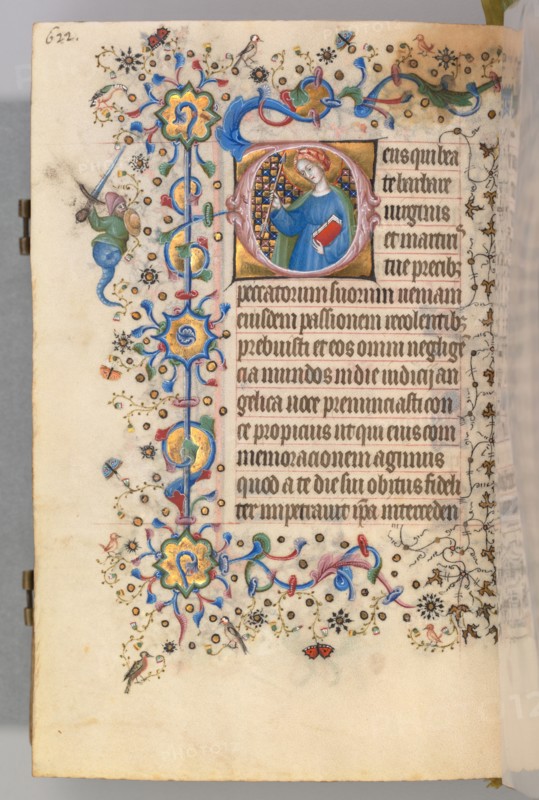 622.
Deus qui bea
te barbare
uirginis
et martiris
tue precibus
peccatorum suorum ueniam
eiusdem passionem recolentib
prebuisti et eos omni neglige
cia mundos in die iudicii an
gelica uoce prenunciasti con
ce propicius ut qui eius com
memoracionem agimus
quod a te die sui obitus fideli
ter impetrauit ipa interceden